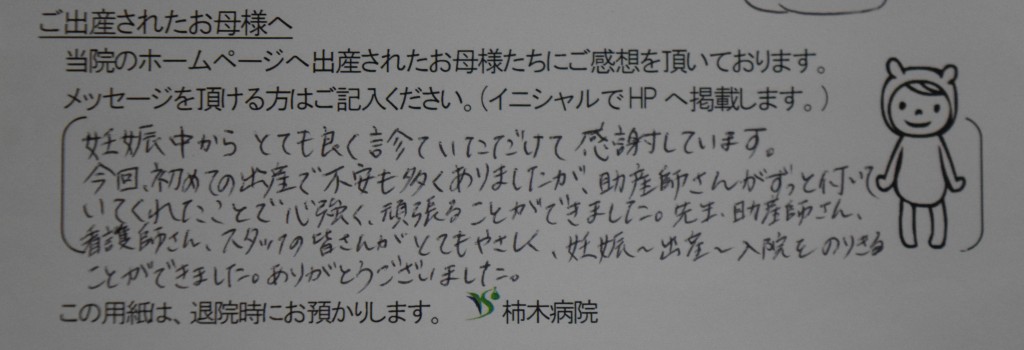 ご出産されたお母様へ
当院のホームページへ出産されたお母様たちにご感想を頂いております。
メッセージを頂ける方はご記入ください。（イニシャルでHPへ掲載します。）
妊娠中からとても良く診ていただけて感謝しています。
今回、初めての出産で不安も多くありましたが、助産師さんがずっと付いて
いてくれたことで心強く、頑張ることができました。先生、助産師さん、
看護師さん、スタッフの皆さんがとてもやさしく、妊娠～出産～入院をのりきる
ことができました。ありがとうございました。
この用紙は、退院時にお預かりします。 柿木病院